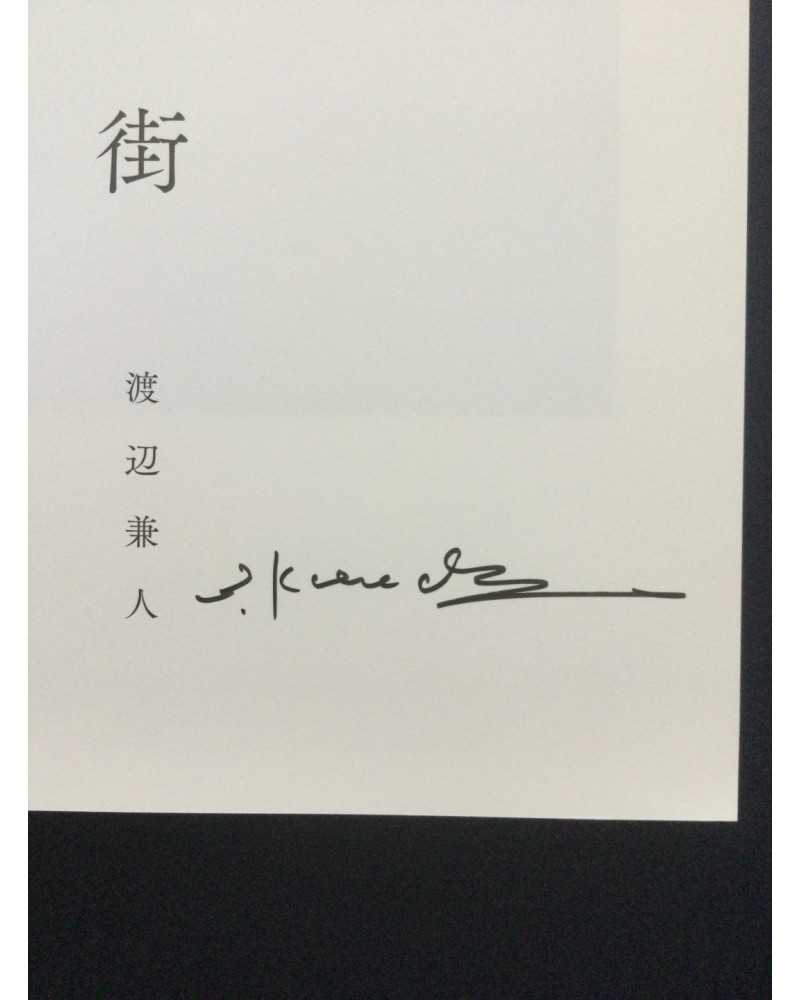 街
渡辺兼人